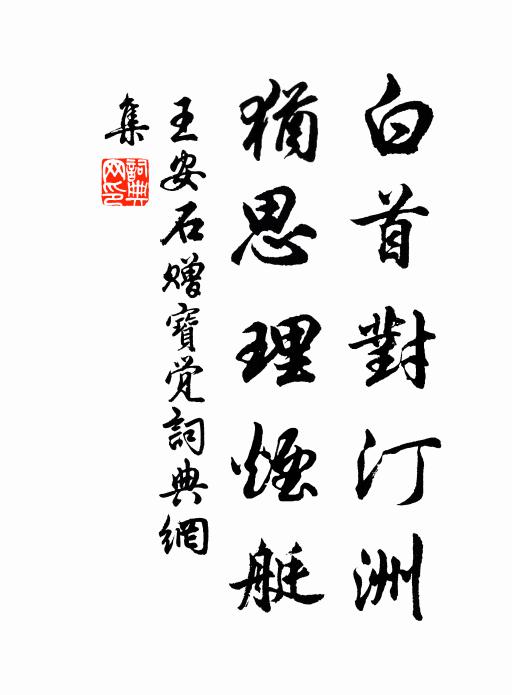 白首對汀洲
猶思理煙艇
王安石贈寶覺詞典網
集
詞典网印